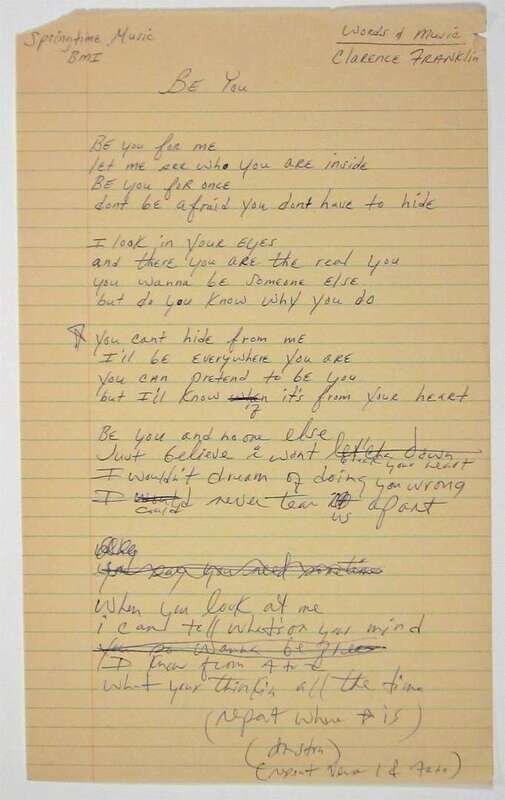 Springtime Music
BMI
Words & Music
Clarence Franklin
Be You
Be you for me
let me see who you are inside
Be you for once
dont be afraid you dont have to hide
I look in your eyes
and there you are the real you
you wanna be someone else
but do you know why you do
☆ You cant hide from me
I'll be everywhere you are
you can pretend to be you
but I'll know when it's from your heart
if
Be you and no one else
Just believe i wont let'cha down
break your heart
I wouldn't dream of doing you wrong
I would never tear apart
could
us
you say you need
When you look at me
i can tell what's on your mind
You so wanna be
I know from A to Z
what your thinkin all the time
(repeat where ☆ is)
(Instru)
(repeat Verse 1 & Fade)